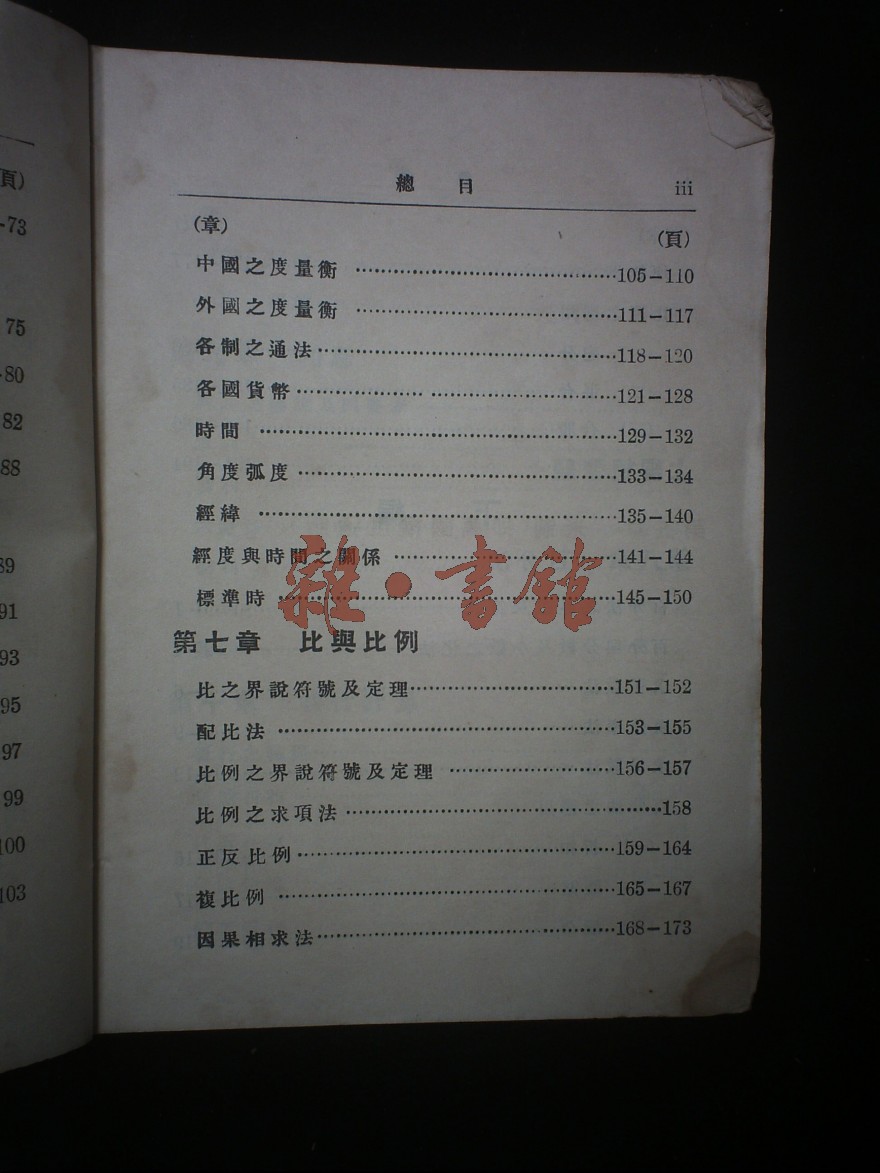 頁)
-73
75
-80
82
88
89
91
93
95
97
99
100
103
總 目 iii
(章)
(頁)
中國之度量衡 ……105—110
外國之度量衡 ……111—117
各制之通法……118—120
各國貨幣……121—128
時間 ……129—132
角度弧度……133—134
經緯 ……135—140
經度與時間之關係 ……141—144
標準時……145—150
雜·書館
第七章 比與比例
比之界說符號及定理……151—152
配比法 ……153—155
比例之界說符號及定理 ……156—157
比例之求項法……158
正反比例……159—164
複比例 ……165—167
因果相求法……168—173